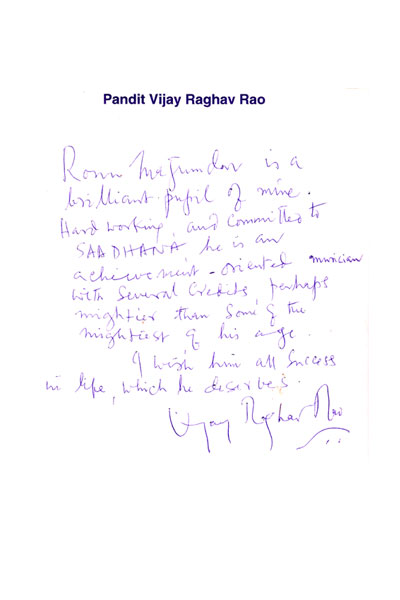 Pandit Vijay Raghav Rao
Ronu Majumdar is a
brilliant pupil of mine.
Hard working, and Committed to
SAADHANA he is an
achievement - oriented musician
with Several Credits perhaps
mightier than some of the
mightiest of his age.
I wish him all Success
in life, which he deserves.
Vijay Raghav Rao